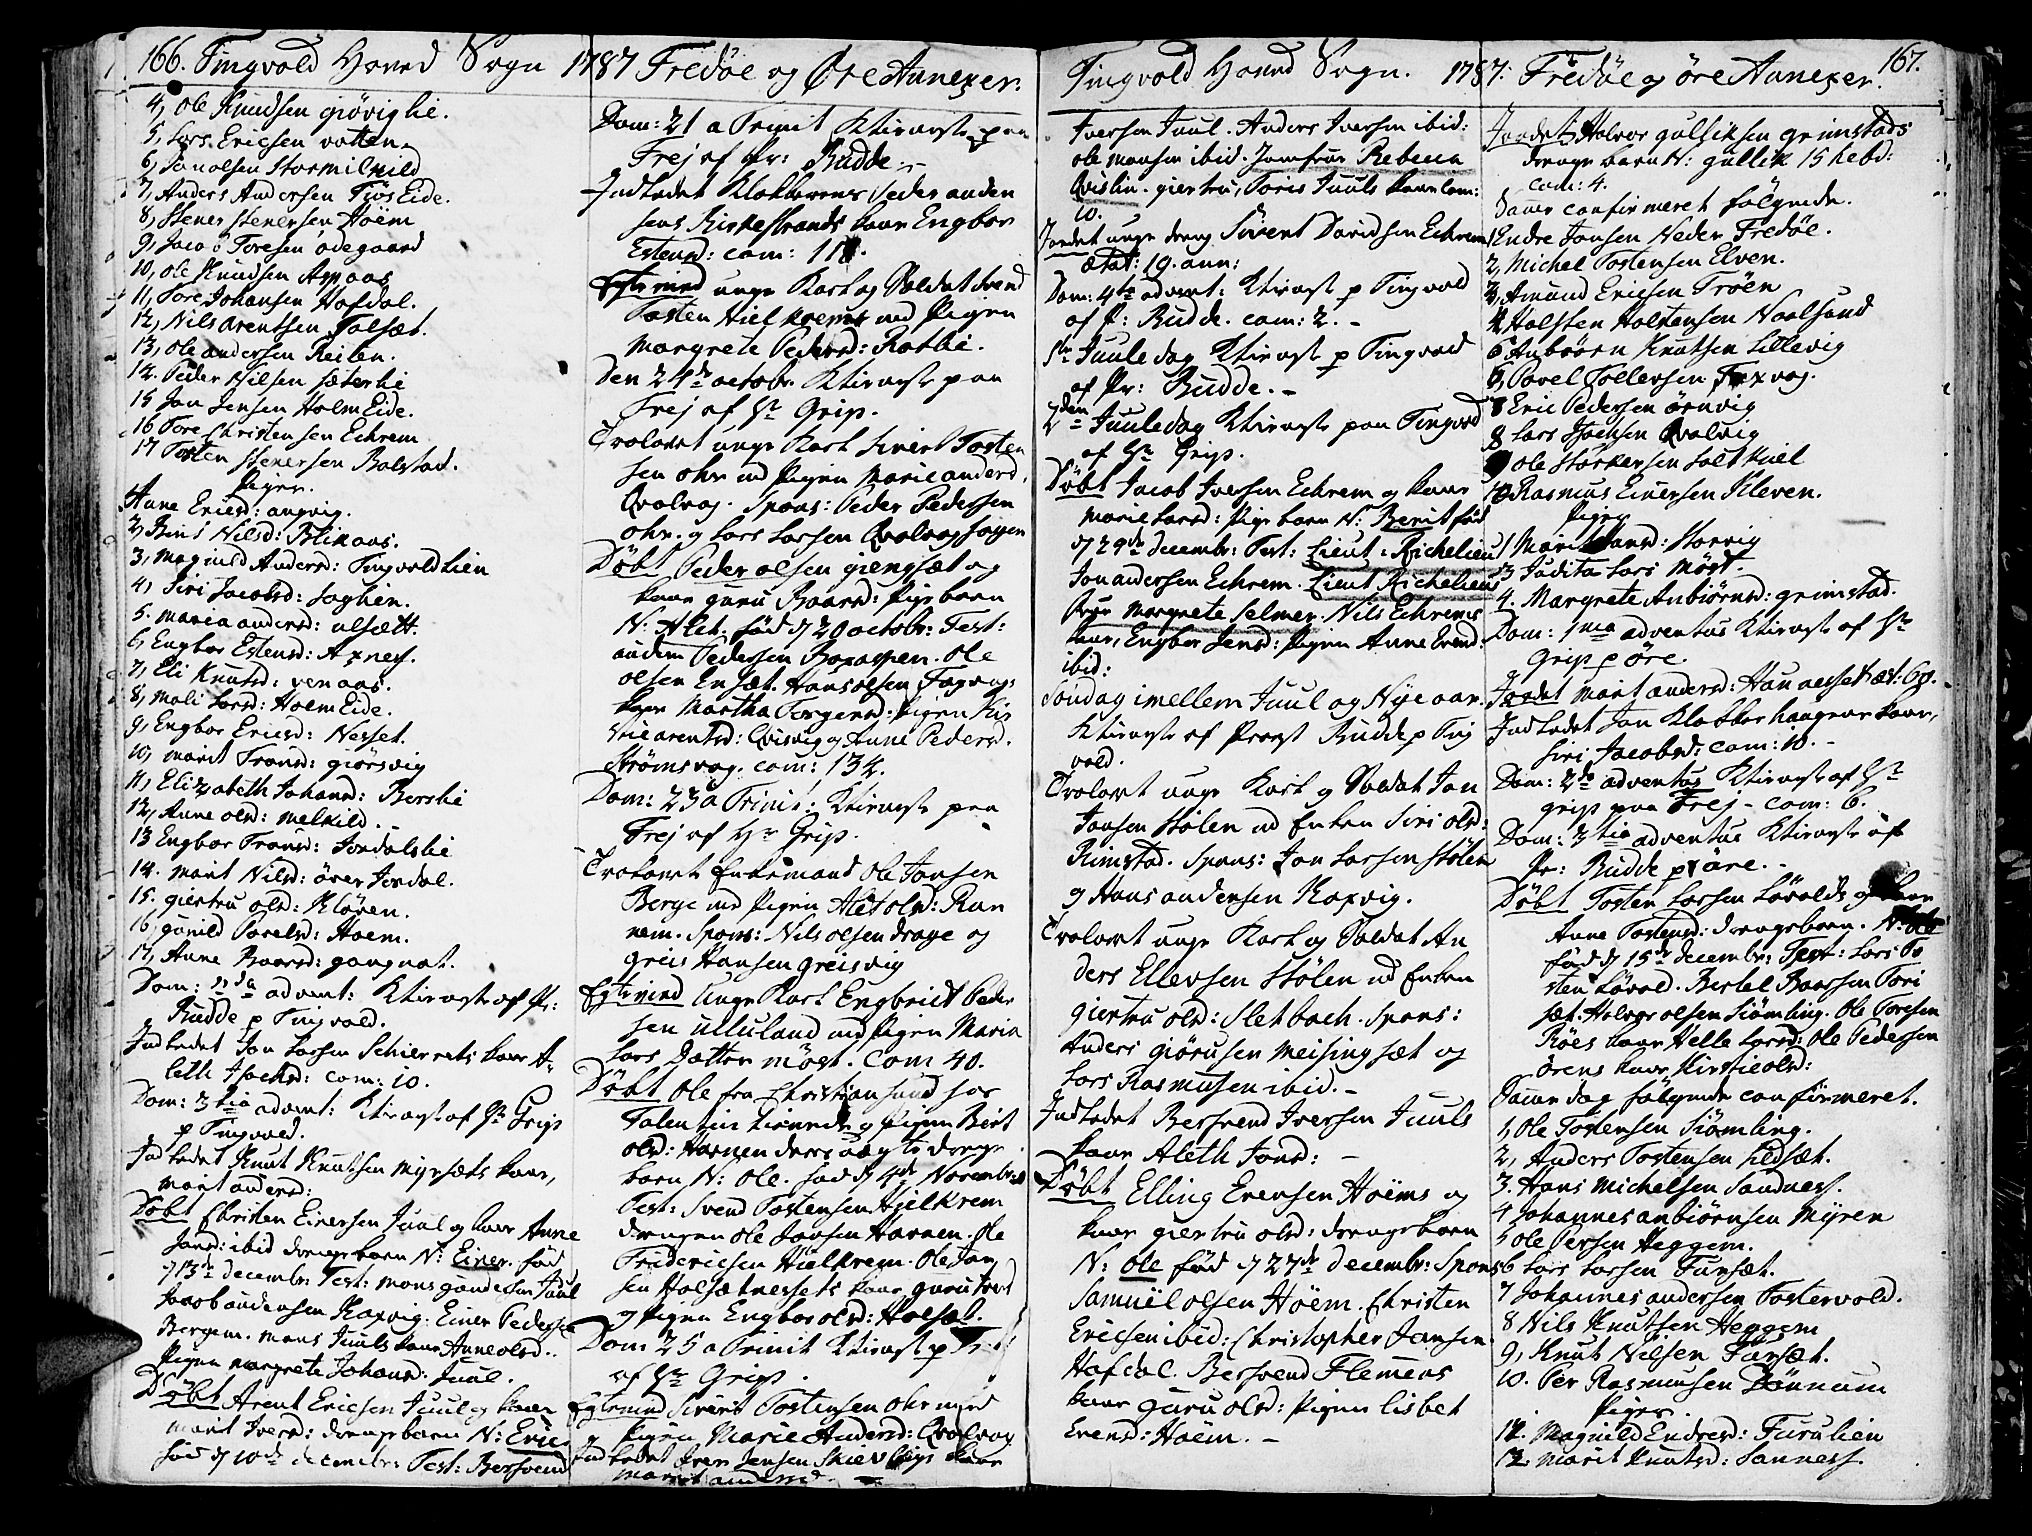 166. Tingvold Hoved Sogn 1787 Fredöe og Øre Annexer:
4, Ole Knudsen giövig lie.
5, Lars Ericsen vatten
6, Jan olsen Stormelkild
7, Anders Andersen Tiøs Eide.
8, Stener stenersen Hoëm
9, Jacob Toresen ödegaard
10, Ole Knudsen Aspaas
11, Tore Johansen Hafdal.
12, Nils Arentsen Falset.
13, Ole andersen Reiten.
14. Peder Nilsen sæterlie
15 Jan Jensen Holm Eide.
16 Tore Christensen Echrem
17 Tosten stenersen Balstad.
Piger.
Anne Ericsd: angvig.
2, Berit Nilsd: Blikaas.
3, Magnild Andersd: Tingvold Lien
4, Siri Jacobsd: Saghien.
5. Maria andersd: ulsætt.
6, Engbor Estensd: Axnes.
7, Eli Knudsd: venaas.
8, Mali Larsd: Holm Eide.
9, Engbor Ericsd: Nesset.
10, Marit Transd: giörsvig
11, Elizabeth Johansd: Berslie
12, Anne olsd: Melkild.
13 Engbor Transd: Jordalslie
14. Marit Nilsd: över Jordal.
15. giertru olsd: Klöven.
16, gunild Povelsd: Hoem.
17, Anne Baarsd: gangnat.
Dom: 2da advent: Ktieneste af Pr:
Budde p Tingvold.
Indledet Jan Larsen Schierrets kaar A-
leth Isachsd: com: 10.
Dom: 3tia advent: Ktieneste af Hr Grip
p Tingvold.
Indledet Knut Knutsen Myrsæts kaar,
marit andersd:
Döbt Christen Einersen Juul og kaar Anne
Jansd: ibid drengebarn N: Einer. föd
d 13de decembr: Test: Mons gundersen Juul
Jacob andersen Koxvig. Einer Pedersen
Bergem. Mons Juuls kaar Anne olsd.
Pigen Margrete Johansd: Juul.
Döbt Arent Ericsen Juul og kaar
marit Iversd: drengebarn N: Eric.
föd d 10de decembr: Test: Bersvend
Dom: 21 a Trinit Ktieneste paa
Frej af Pr: Budde.-
Indledet Klokkerens Peder anders
sens Kirkestrands kaar Engbor
Estensd: com: 11.
Egtevied unge Karl og Soldat Svend
Tosten Hielkrems med Pigen
Margrete Pedersd: Rotlie.
Den 24de octobr: Ktieneste paa
Frej af Hr Grip.
Trolovet unge Karl Sivert Tosten
sen ohr med Pigen Marie andersd,
Qvalvog. Spons: Peder Pedersen
ohr. og Lars Larsen Qvalvog
Döbt Peder olsen giengset og
kaar guru Baarsd: Pigebarn
N: Alet. föd d 20 octobr: Test:
anders Pedersen Boxaspen. Ole
olsen Enset. Hans olsen Foxvogs
kaar Martha Torgersd: Pigen Kir
stie arentsd: Qvisvig og Anne Pedersd.
Strömsvog. com: 134.
Dom: 23 a Trinit: Ktieneste paa
Frej af Hr Grip.
Trolovet Enkemand Ole Jansen
Berge med Pigen Alet olsd: Ran
nem. Spons: Nils olsen drage og
greis Hansen greisvig
Egtevied Unge Karl Engbricht Peder
sen ulluland med Pigen Maria
Lars Datter möst. Com 40.
Döbt Ole fra Christiansund hos
Talentin og Pigen Berit
olsd: Havnen deres uægte drenge
barn N: Ole. föd d 4de Novembr:
Test: Svend Tostensen Hjelkrem
drengen Ole Jansen Havnen. Ole
Fridericsen Hielkrem. Ole Jan
sen Halsetnessets kaar guru
og Pigen Engbor olsd: Halset.
Dom: 25 a Trinit Ktieneste p Frej
af Hr Grip.
Egtevied Sivert Tostensen ohr med
Pigen Marie Andersd: Qvalvog
Indledet Iver Jensen kaar
marit andersd.
Tingvold Hoved Sogn. 1787: Fredöe og öre Annexer. 167.
Iversen Juul. Anders Iversen ibid:
ole monsen ibid. Jomfrue Rebecca
Qvislin. giertru, Toris Juuls kaar com:
10.
Jordet unge dreng Sivert Davidsen Echrem
ætat: 19. ann:
Dom: 4ta advent: Ktieneste p Tingvold
af Pr: Budde. com: 2.-
1ste Juuledag Ktieneste p Tingvold
af Pr: Budde.-
2den Juuledag Ktieneste paa Tingvold
af Hr Grip.
Döbt Jacob Iversen Echrem og kaar
Marie Larsd: Pigebarn N: Berit föd
d 29de decembr: Test: Lieut: Richelieu
Jon andersen Echrem. Lieut Richelieus
frue Margrete Selmer. Nils Echrems
kaar, Engbor Jensd: Pigen Anne Evensd:
ibid:
Söndag imellem Juul og Nyeaar
Ktieneste af Provst Budde p Ting
vold.
Trolovet unge Karl og Soldat Jan
Jansen Stölen med Enken Siri olsd:
Rimstad. Spons: Jon Larsen Stölen
og Hans andersen Koxvig.
Trolovet unge Karl og Soldat An
ders Ellevsen Stölen med Enken
giertru olsd: Sletbach. Spons:
Anders giörusen Meisingset og
Lars Rasmusen ibid.-
Indledet Bersvend Iversen Juuls
kaar Aleth Jonsd: -
Döbt Elling Evensen Hoëms og
kaar giertru olsd: drengebarn
N: Ole föd d 27de decembr: Spons
Samuel olsen Hoëm. Christen
Ericsen ibid: Christopher Jansen
Hafdal. Bersvend Flemens
kaar guru olsd: Pigen lisbet
Evensd: Hoem.-
Jordet Halvor gulliksen grimstads
drenge barn N: gullik 15 hebd:
com: 4.
Samme confirmeret fölgende.
1 Endre Jansen Neder Fredöe.
2, Michel Tostensen Elven.
3, Amund Ericsen Tröen
4 Halsten Holstensen Naalsund
5 Anbiörn Knutsen Lillevig
6, Povel Tollevsen Foxvog.
7 Eric Pedersen örnvig
8 Lars Isachsen Qvalvig
9 Ole Storkersen saltkiel
10 Rasmus Einersen Kleven.
Piger
1 Marit Hansd: Storvig
3 Judita Lars Möst.
4. Margrete Anbiörnsd: grimstad.
Dom: 1ma adventus Ktieneste af Hr
Grip p öre.
Jordet marit andersd: Hannasset æt: 69.
Indledet Jon Klokkerhaugens kaar,
Siri Jacobsd: com: 10.-
Dom: 2da adventus Ktieneste af Hr
grip paa Frej - com: 6.
Dom: 3tia adventus Ktieneste af
Pr: Budde p öre.-
Döbt Tosten Larsen Lövolds og kaar
Anne Tostensd: drengebarn. N: Ole
föd d 15de decembr: Test: Lars To
sten Lövold. Bertel Baarsen Tori
set. Halvor olsen Siömling. Ole Toresen
Röes kaar Helle Larsd: Ole Pedersen
örens kaar Kirstie olsd:
Samme dag fölgende confirmeret.
1, Ole Tostensen Siömling.
2, Anders Tostensen Lidset.
3. Hans Michelsen Sandness.
4 Johannes anbiörnsen Myren
5 Ole Persen Heggem.
6 Lars Larsen Furset.
7 Johannes andersen Tostervold.
8 Nils Knutsen Heggem
9, Knut Nilsen Furset.
10. Per Rasmusen Dönnum
Piger.
12. Magnild Endresd: Furulien
13. Marit Knutsd: Sanness.